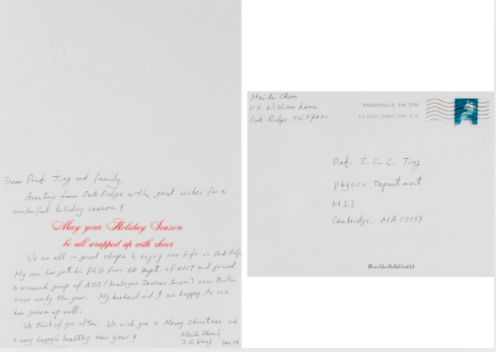 Dear Prof. Ting and family
Greeting from Oak Ridge with good wishes for a
wonderful holiday season!
May your Holiday Season
be all wrapped up with cheer
We are all in good shape & enjoy our life in Oak Ridge
My son has got his PhD from EE Dept. of MIT and joined
a research group of ADI (Analogue Devices) near Boston
since early the year. My husband and I are happy to see
him grown up well.
We think of you often. We wish you a Merry Christmas and
a very happy & healthy new year!
William Lane
Oak Ridge, TN
KNOXVILLE TN 379
Prof. S. C. C. Ting
Physics Department
MIT
Cambridge, MA 02139